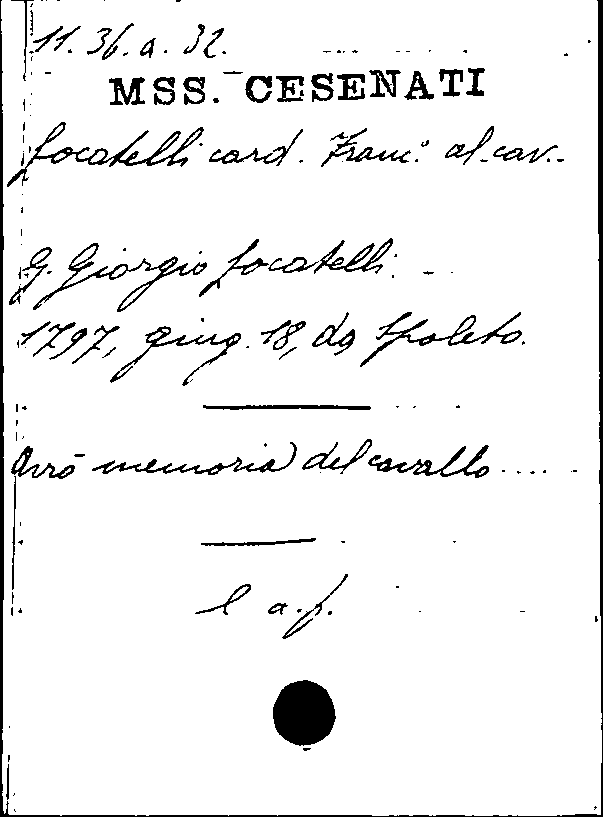 11.36.a.32.
MSS. CESENATI
Locatelli card. Franc.° al cav.
G. Giorgio Locatelli.
1797, giug. 18, da Spoleto.
Avrò memoria del cavallo....
l a.f.